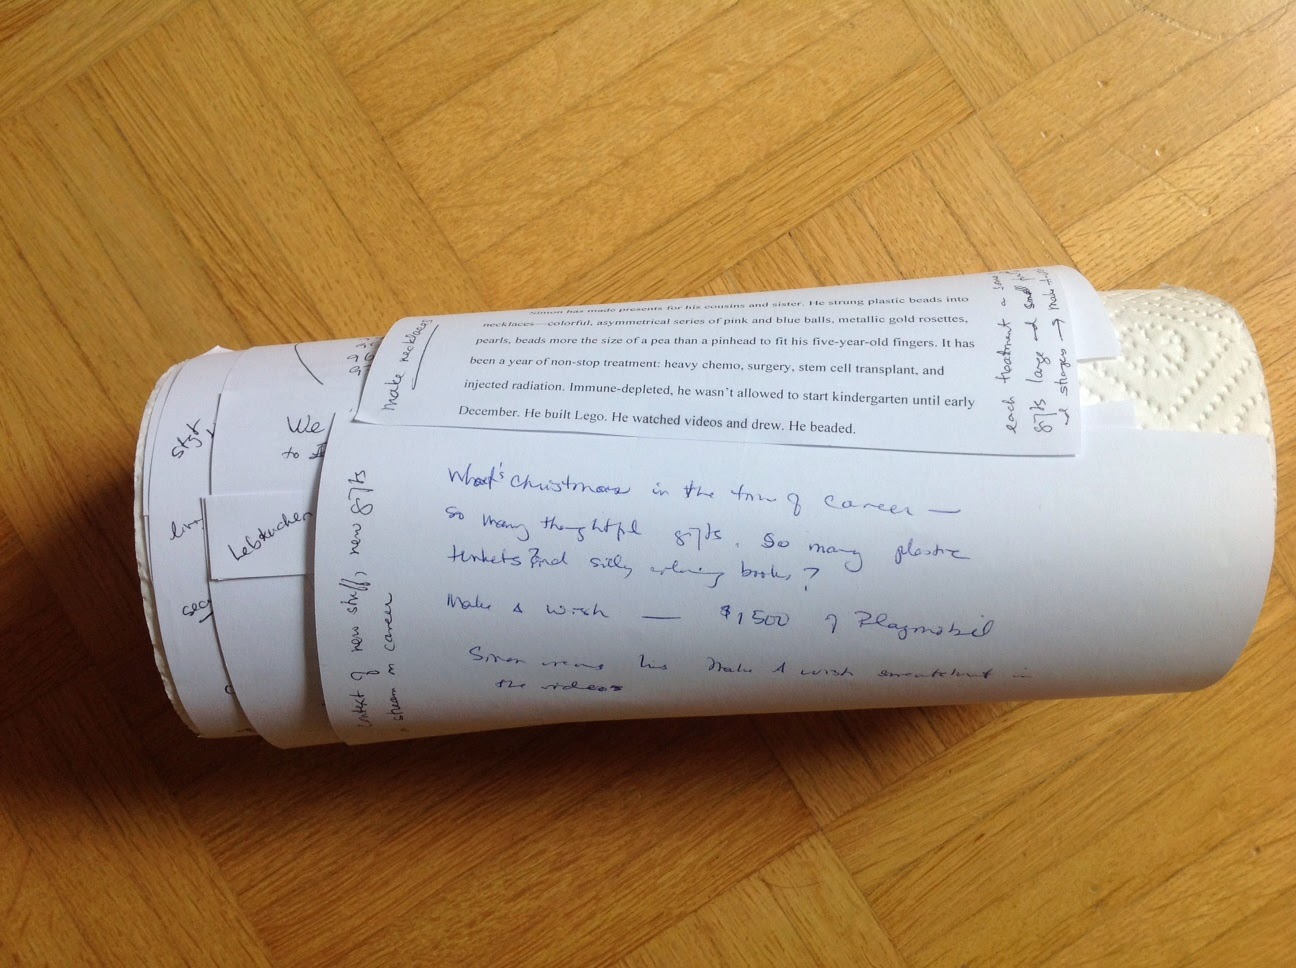 Simon has made presents for his cousins and sister. He strung plastic beads into
necklaces—colorful, asymmetrical series of pink and blue balls, metallic gold rosettes,
pearls, beads more the size of a pea than a pinhead to fit his five-year-old fingers. It has
been a year of non-stop treatment: heavy chemo, surgery, stem cell transplant, and
injected radiation. Immune-depleted, he wasn't allowed to start kindergarten until early
December. He built Lego. He watched videos and drew. He beaded.
make necklaces
each treatment a
gifts large and small
and stages → make
What's Christmas in the time of career —
so many thoughtful gifts. So many plastic
trinkets and silly coloring books?
Make A Wish — $1500 of Playmobil
Simon wears his Make A Wish sweatshirt in
the videos
context of new stuff, new gifts
stream in career
We
to
Lebkuchen